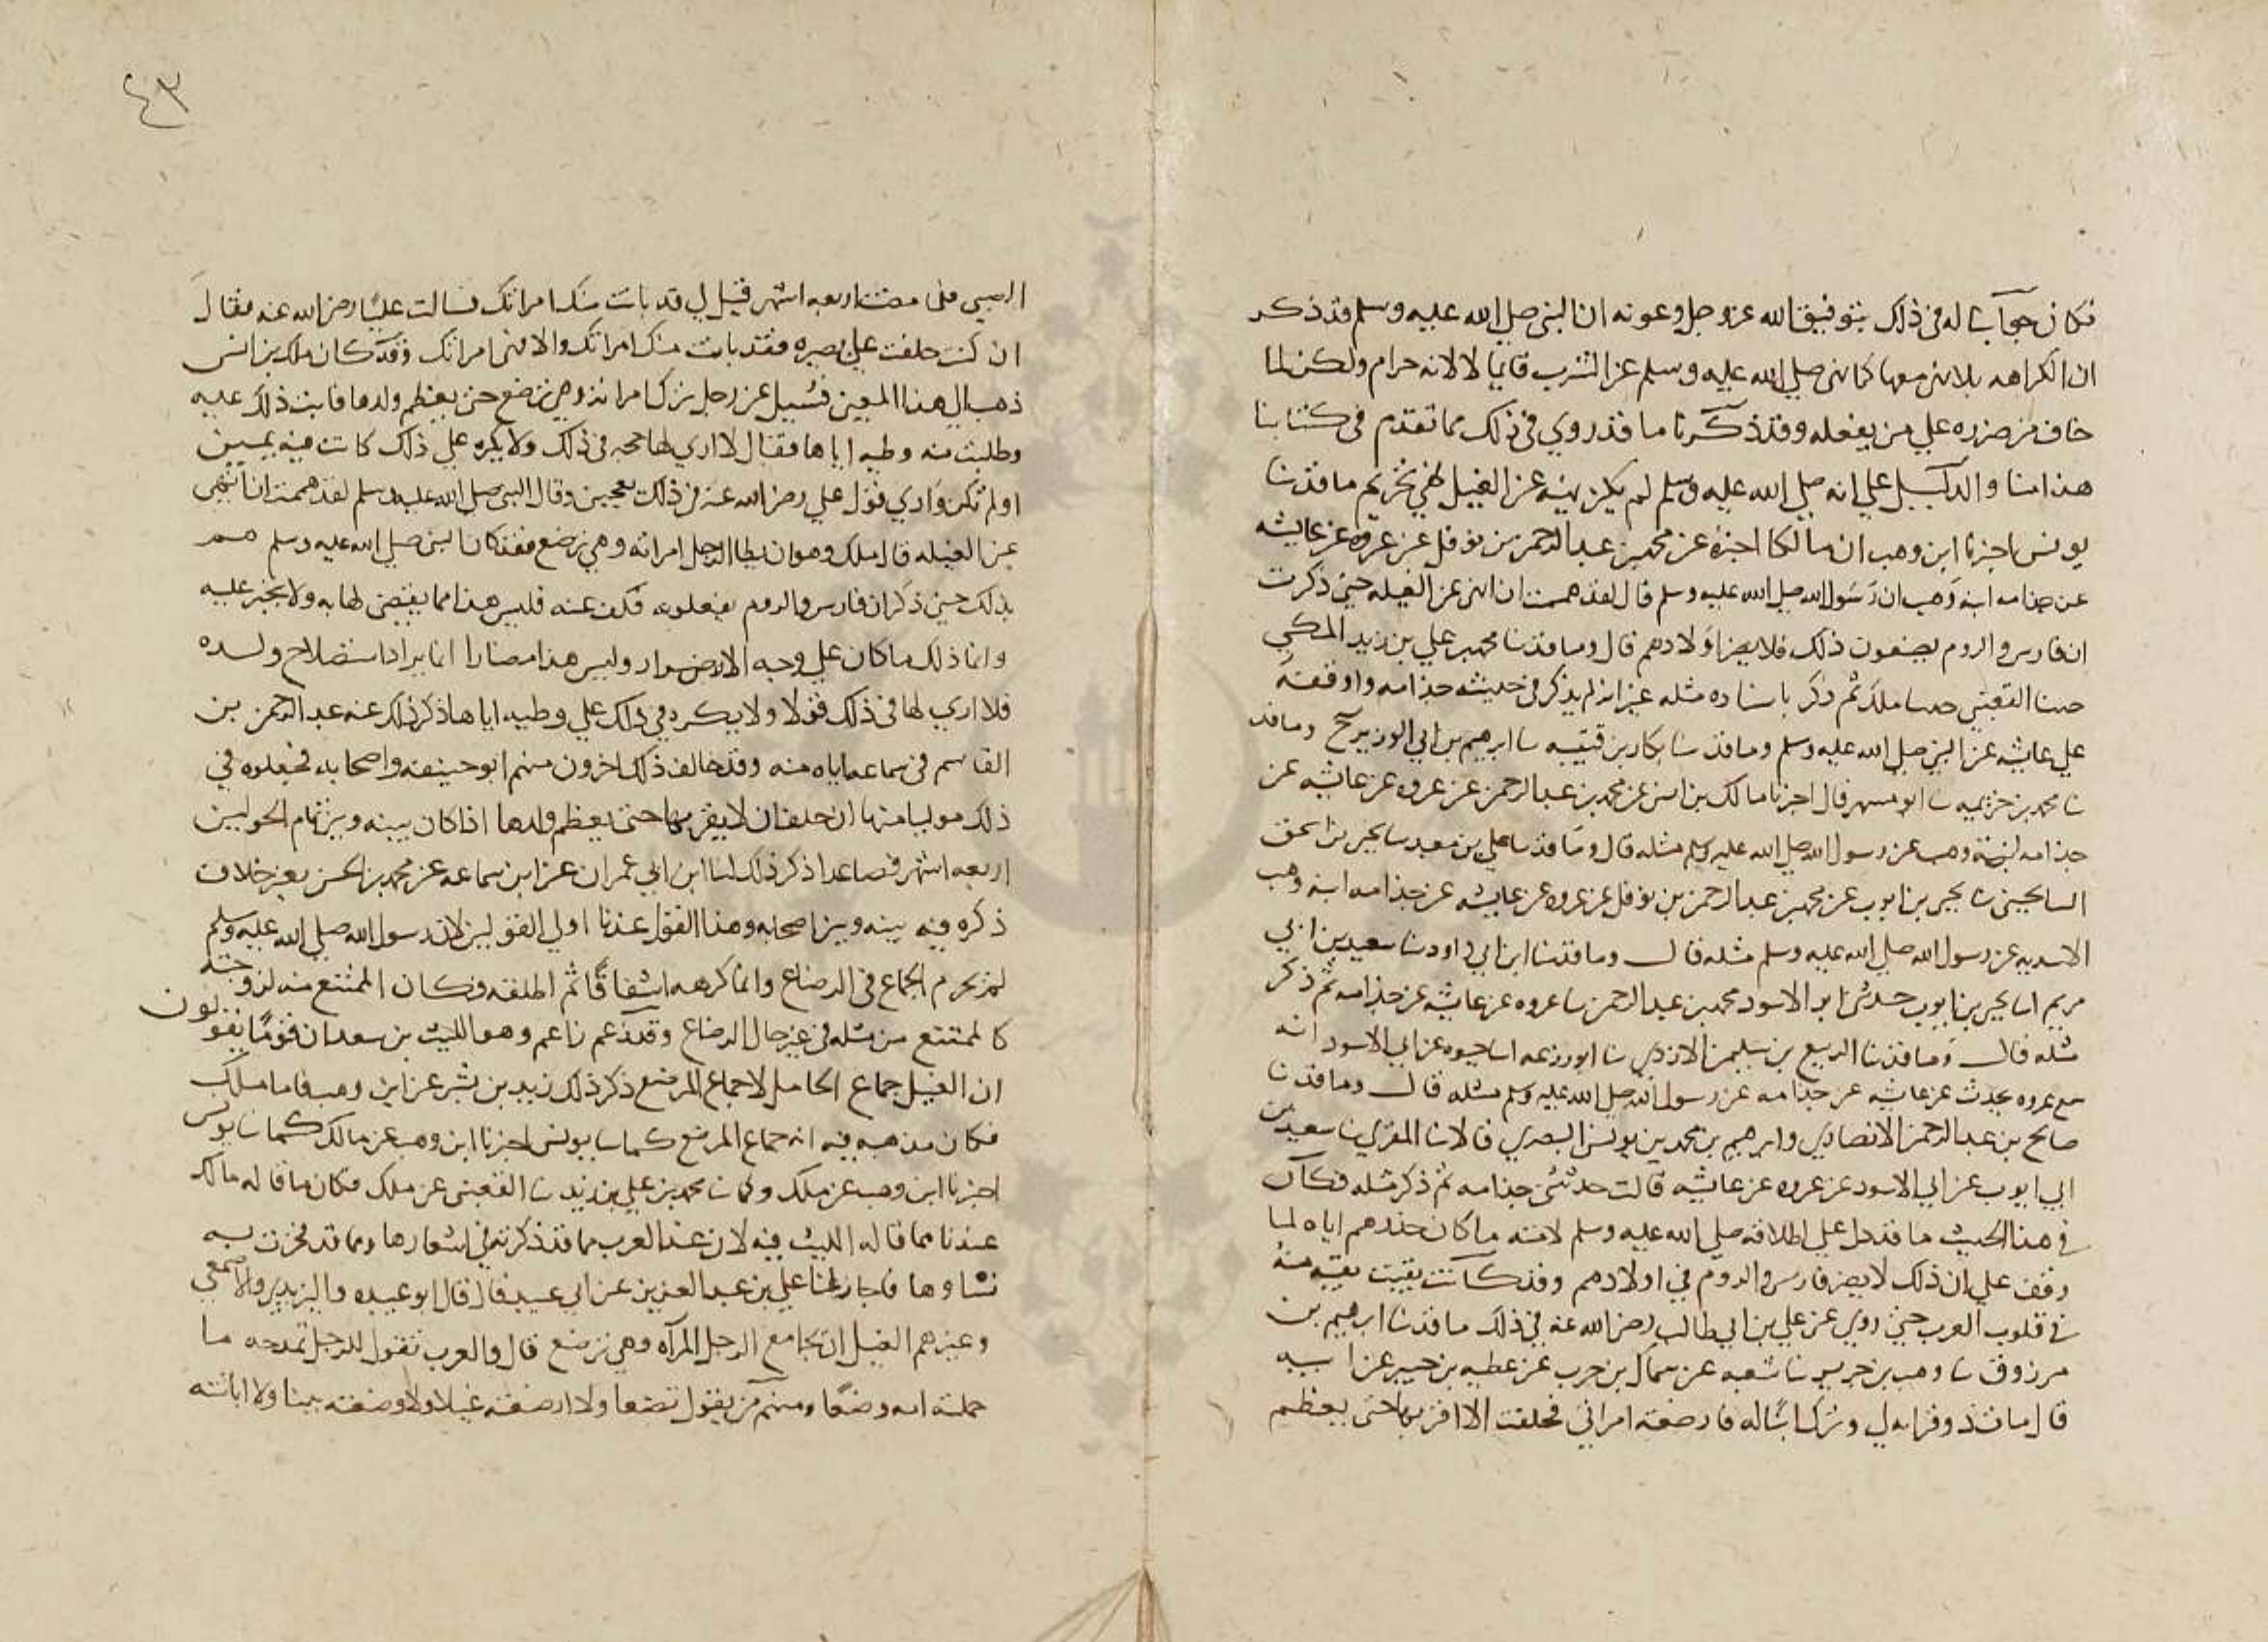 فكان جوابنا له في ذلك بتوفيق الله عز وجل وعونه ان النبي صلى الله عليه وسلم قد ذكر
ان الكراهه بلا نهي معها كما نهى صلى الله عليه وسلم عن الشرب قايما لا لانه حرام ولكن لما
خاف من ضرره علي من يفعله وقد ذكرنا ما قد روي في ذلك مما تقدم في كتابنا
هذا منا والدليل علي انه صلى الله عليه وسلم لم يكن نهيه عن الغيل لهي تحريم ما قد نا
يونس اخبرنا ابن وهب ان مالكا اخبره عن محمد بن عبد الرحمن بن نوفل عن عروه عن عايشه
عن جذامه ابنه وهب ان رسول الله صلى الله عليه وسلم قال لقد هممت ان انهى عن الغيله حتى ذكرت
ان فارس والروم يصنعون ذلك فلا يضر اولادهم قال وما قد نا محمد بن علي بن زيد المكي
حدثنا القعنبي حدثنا ملك ثم ذكر باسناده مثله غير انه لم يذكر في حديثه جذامه واوقفه
علي عايشه عن النبي صلى الله عليه وسلم وما قد نا بكار بن قتيبه نا ابرهيم بن ابي الوزير ح وما قد
نا محمد بن خزيمه نا ابو مسهر قال اخبرنا مالك بن انس عن محمد بن عبد الرحمن عن عروه عن عايشه عن
جذامه ابنة وهب عن رسول الله صلى الله عليه وسلم مثله قال وما قد نا علي بن معبد نا يحيى بن اسحق
السالحيني نا يحيى بن ايوب عن محمد بن عبد الرحمن بن نوفل عن عروه عن عايشه عن جذامه ابنه وهب
الاسديه عن رسول الله صلى الله عليه وسلم مثله قال وما قد نا ابن ابي داود نا سعيد بن ابي
مريم انا يحيى بن ايوب حدثني ابو الاسود محمد بن عبد الرحمن نا عروه عن عايشه عن جذامه ثم ذكر
مثله قال وما قد نا الربيع بن سليمن الازدي نا ابو زرعه انا حيوه عن ابي الاسود انه
سمع عروه يحدث عن عايشه عن جذامه عن رسول الله صلى الله عليه وسلم مثله قال وما قد نا
صالح بن عبد الرحمن الانصاري وابرهيم بن محمد بن يونس البصري قالا نا المقري نا سعيد بن
ابي ايوب عن ابي الاسود عن عروه عن عايشه قالت حدثتني جذامه ثم ذكر مثله فكان
في هذا الحديث ما قد دل علي اطلاقه صلى الله عليه وسلم لامته ما كان حذرهم اياه لما
وقف علي ان ذلك لا يضر فارس والروم في اولادهم وقد كانت بقيت بقيه منه
في قلوب العرب حتى روي عن علي بن ابي طالب رضي الله عنه في ذلك ما قد نا ابرهيم بن
مرزوق نا وهب بن جرير نا شعبه عن سماك بن حرب عن عطيه بن جبير عن ابيه
قال مات ذو قرابه لي وترك ابنا له فارضعته امراتي فحلفت الا اقربها حتى يفطم
الصبي فلما مضت اربعه اشهر قيل لي قد بانت منك امراتك فسالت عليا رضي الله عنه فقال
ان كنت حلفت علي بصيره فقد بانت منك امراتك والا فهي امراتك وقد كان ملك بن انس
ذهب الي هذا المعنى فسيل عن رجل ترك امراته وهي ترضع حتى يفطم ولدها فابت ذلك عليه
وطلبت منه وطيه اياها فقال لا اري لها حجه في ذلك ولا يكره علي ذلك كانت فيه يمين
او لم تكن واري قول علي رضي الله عنه في ذلك يعجبني وقال النبي صلى الله عليه وسلم لقد هممت ان انهى
عن الغيله قال ملك وهو ان يطا الرجل امراته وهي ترضع فقد كان النبي صلى الله عليه وسلم هم
بذلك حتى ذكر ان فارس والروم يفعلونه فكف عنه فليس هذا مما يقضى لها به ولا يجبر عليه
وانما ذلك ما كان علي وجه الاضرار وليس هذا مضارا انما يراد استصلاح ولده
فلا اري لها في ذلك قولا ولا يكره في ذلك علي وطيه اياها ذكر ذلك عنه عبد الرحمن بن
القاسم في سماعه اياه منه وقد خالف ذلك اخرون منهم ابو حنيفه واصحابه فجعلوه في
ذلك موليا منها ان حلف ان لا يقربها حتى يفطم ولدها اذا كان بينه وبين تمام الحولين
اربعه اشهر فصاعدا ذكر ذلك لنا ابن ابي عمران عن ابن سماعه عن محمد بن الحسن بغير خلاف
ذكره فيه بينه وبين اصحابه وهذا القول عندنا اولي القولين لان رسول الله صلى الله عليه وسلم
لم يحرم الجماع في الرضاع وانما كرهه اشفاقا ثم اطلقه فكان الممتنع منه لزوجته
كالممتنع من مثله في غير حال الرضاع وقد زعم زاعم وهو الليث بن سعد ان قوما يقولون
ان الغيل جماع الحامل لا جماع المرضع ذكر ذلك زيد بن بشر عن ابن وهب فاما ملك
فكان مذهبه فيه انه جماع المرضع كما نا يونس اخبرنا ابن وهب عن مالك كما نا يونس
اخبرنا ابن وهب عن ملك وكما نا محمد بن علي بن زيد نا القعنبي عن ملك فكان ما قاله مالك
عندنا مما قاله الليث فيه لان عند العرب مما قد ذكرته في اشعارها ومما قد فخرت به
نساوها فاجاز لنا علي بن عبد العزيز عن ابي عبيد قال قال ابو عبيده واليزيدي والاصمعي
وغيرهم الغيل ان يجامع الرجل المرآه وهي ترضع قال والعرب تقول للرجل تمدحه ما
حملته امه وضعا ومنهم من يقول تضعا ولا ارضعته غيلا ولا وضعته يتنا ولا اباتته